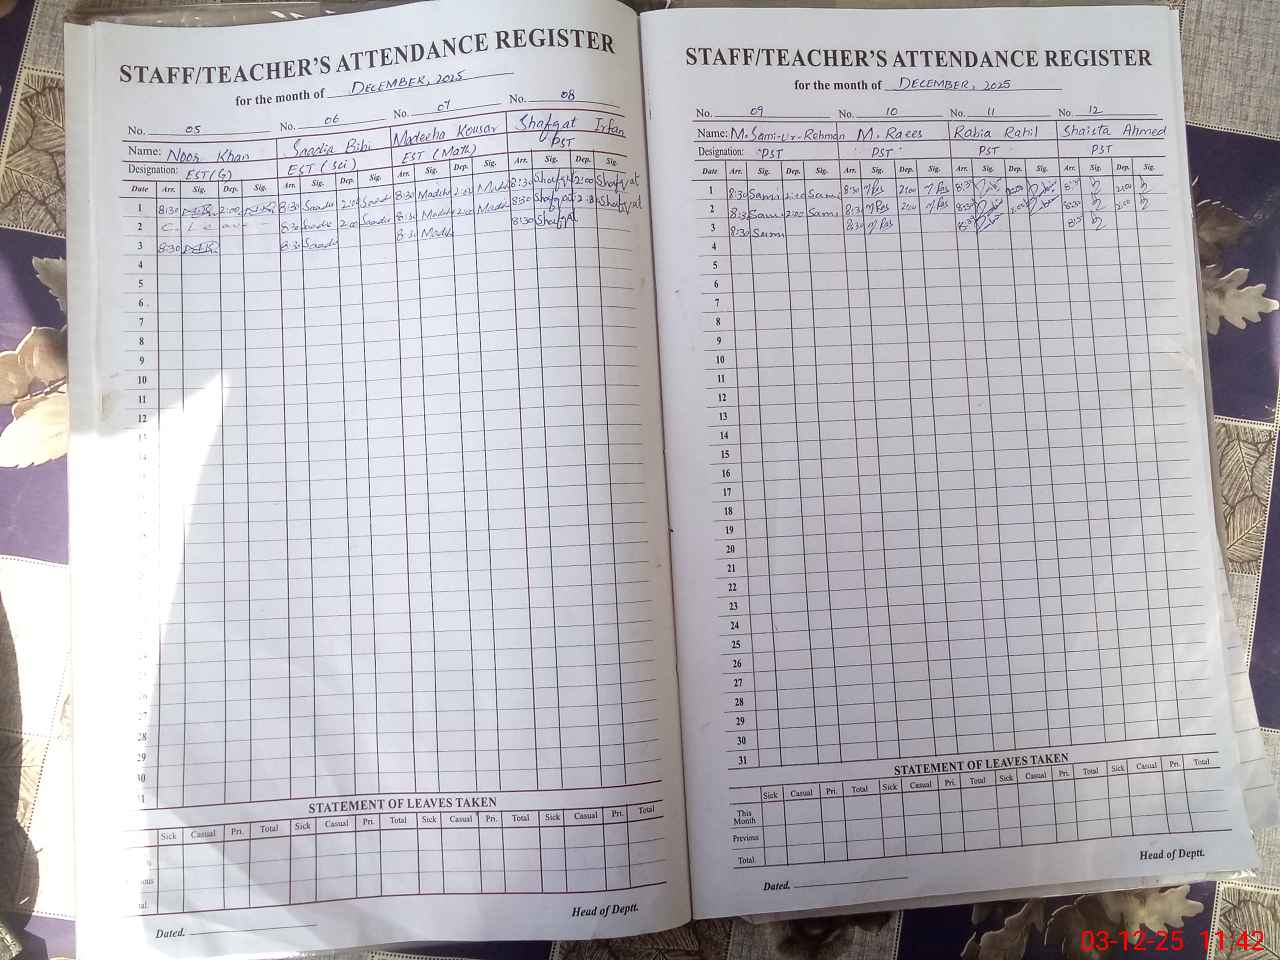 STAFF/TEACHER'S ATTENDANCE REGISTER
for the month of DECEMBER, 2025
No. 05 No. 06 No. 07 No. 08
Name: Noor Khan Saadia Bibi Madeeha Kousar Shafqat Irfan
Designation: EST(G) EST (Sci) EST (Math) PST
Date Arr. Sig. Dep. Sig. Arr. Sig. Dep. Sig. Arr. Sig. Dep. Sig. Arr. Sig. Dep. Sig.
1 8:30 2:00 8:30 Saadia 2:00 Saadia 8:30 Madeha 2:00 Madeha 8:30 Shafqat 2:00 Shafqat
2 C. Leave 8:30 Saadia 2:00 Saadia 8:30 Madeha 2:00 Madeha 8:30 Shafqat 2:30 Shafqat
3 8:30 8:30 Saadia 8:30 Madeha 8:30 Shafqat
4
5
6
7
8
9
10
11
12
28
29
30
STATEMENT OF LEAVES TAKEN
Sick Casual Pri. Total Sick Casual Pri. Total Sick Casual Pri. Total Sick Casual Pri. Total
Dated.
Head of Deptt.
STAFF/TEACHER'S ATTENDANCE REGISTER
for the month of DECEMBER, 2025
No. 09 No. 10 No. 11 No. 12
Name: M. Sami-Ur-Rehman M. Raees Rabia Rahil Shaista Ahmed
Designation: PST PST PST PST
Date Arr. Sig. Dep. Sig. Arr. Sig. Dep. Sig. Arr. Sig. Dep. Sig. Arr. Sig. Dep. Sig.
1 8:30 Sami 2:00 Sami 8:30 2:00 8:30 2:00 8:30 2:00
2 8:30 Sami 2:00 Sami 8:30 2:00 8:30 2:00 8:30 2:00
3 8:30 Sami 8:30 8:30 8:30
4
5
6
7
8
9
10
11
12
13
14
15
16
17
18
19
20
21
22
23
24
25
26
27
28
29
30
31
STATEMENT OF LEAVES TAKEN
Sick Casual Pri. Total Sick Casual Pri. Total Sick Casual Pri. Total Sick Casual Pri. Total
This Month
Previous
Total
Head of Deptt.
Dated.
03-12-25 11:42